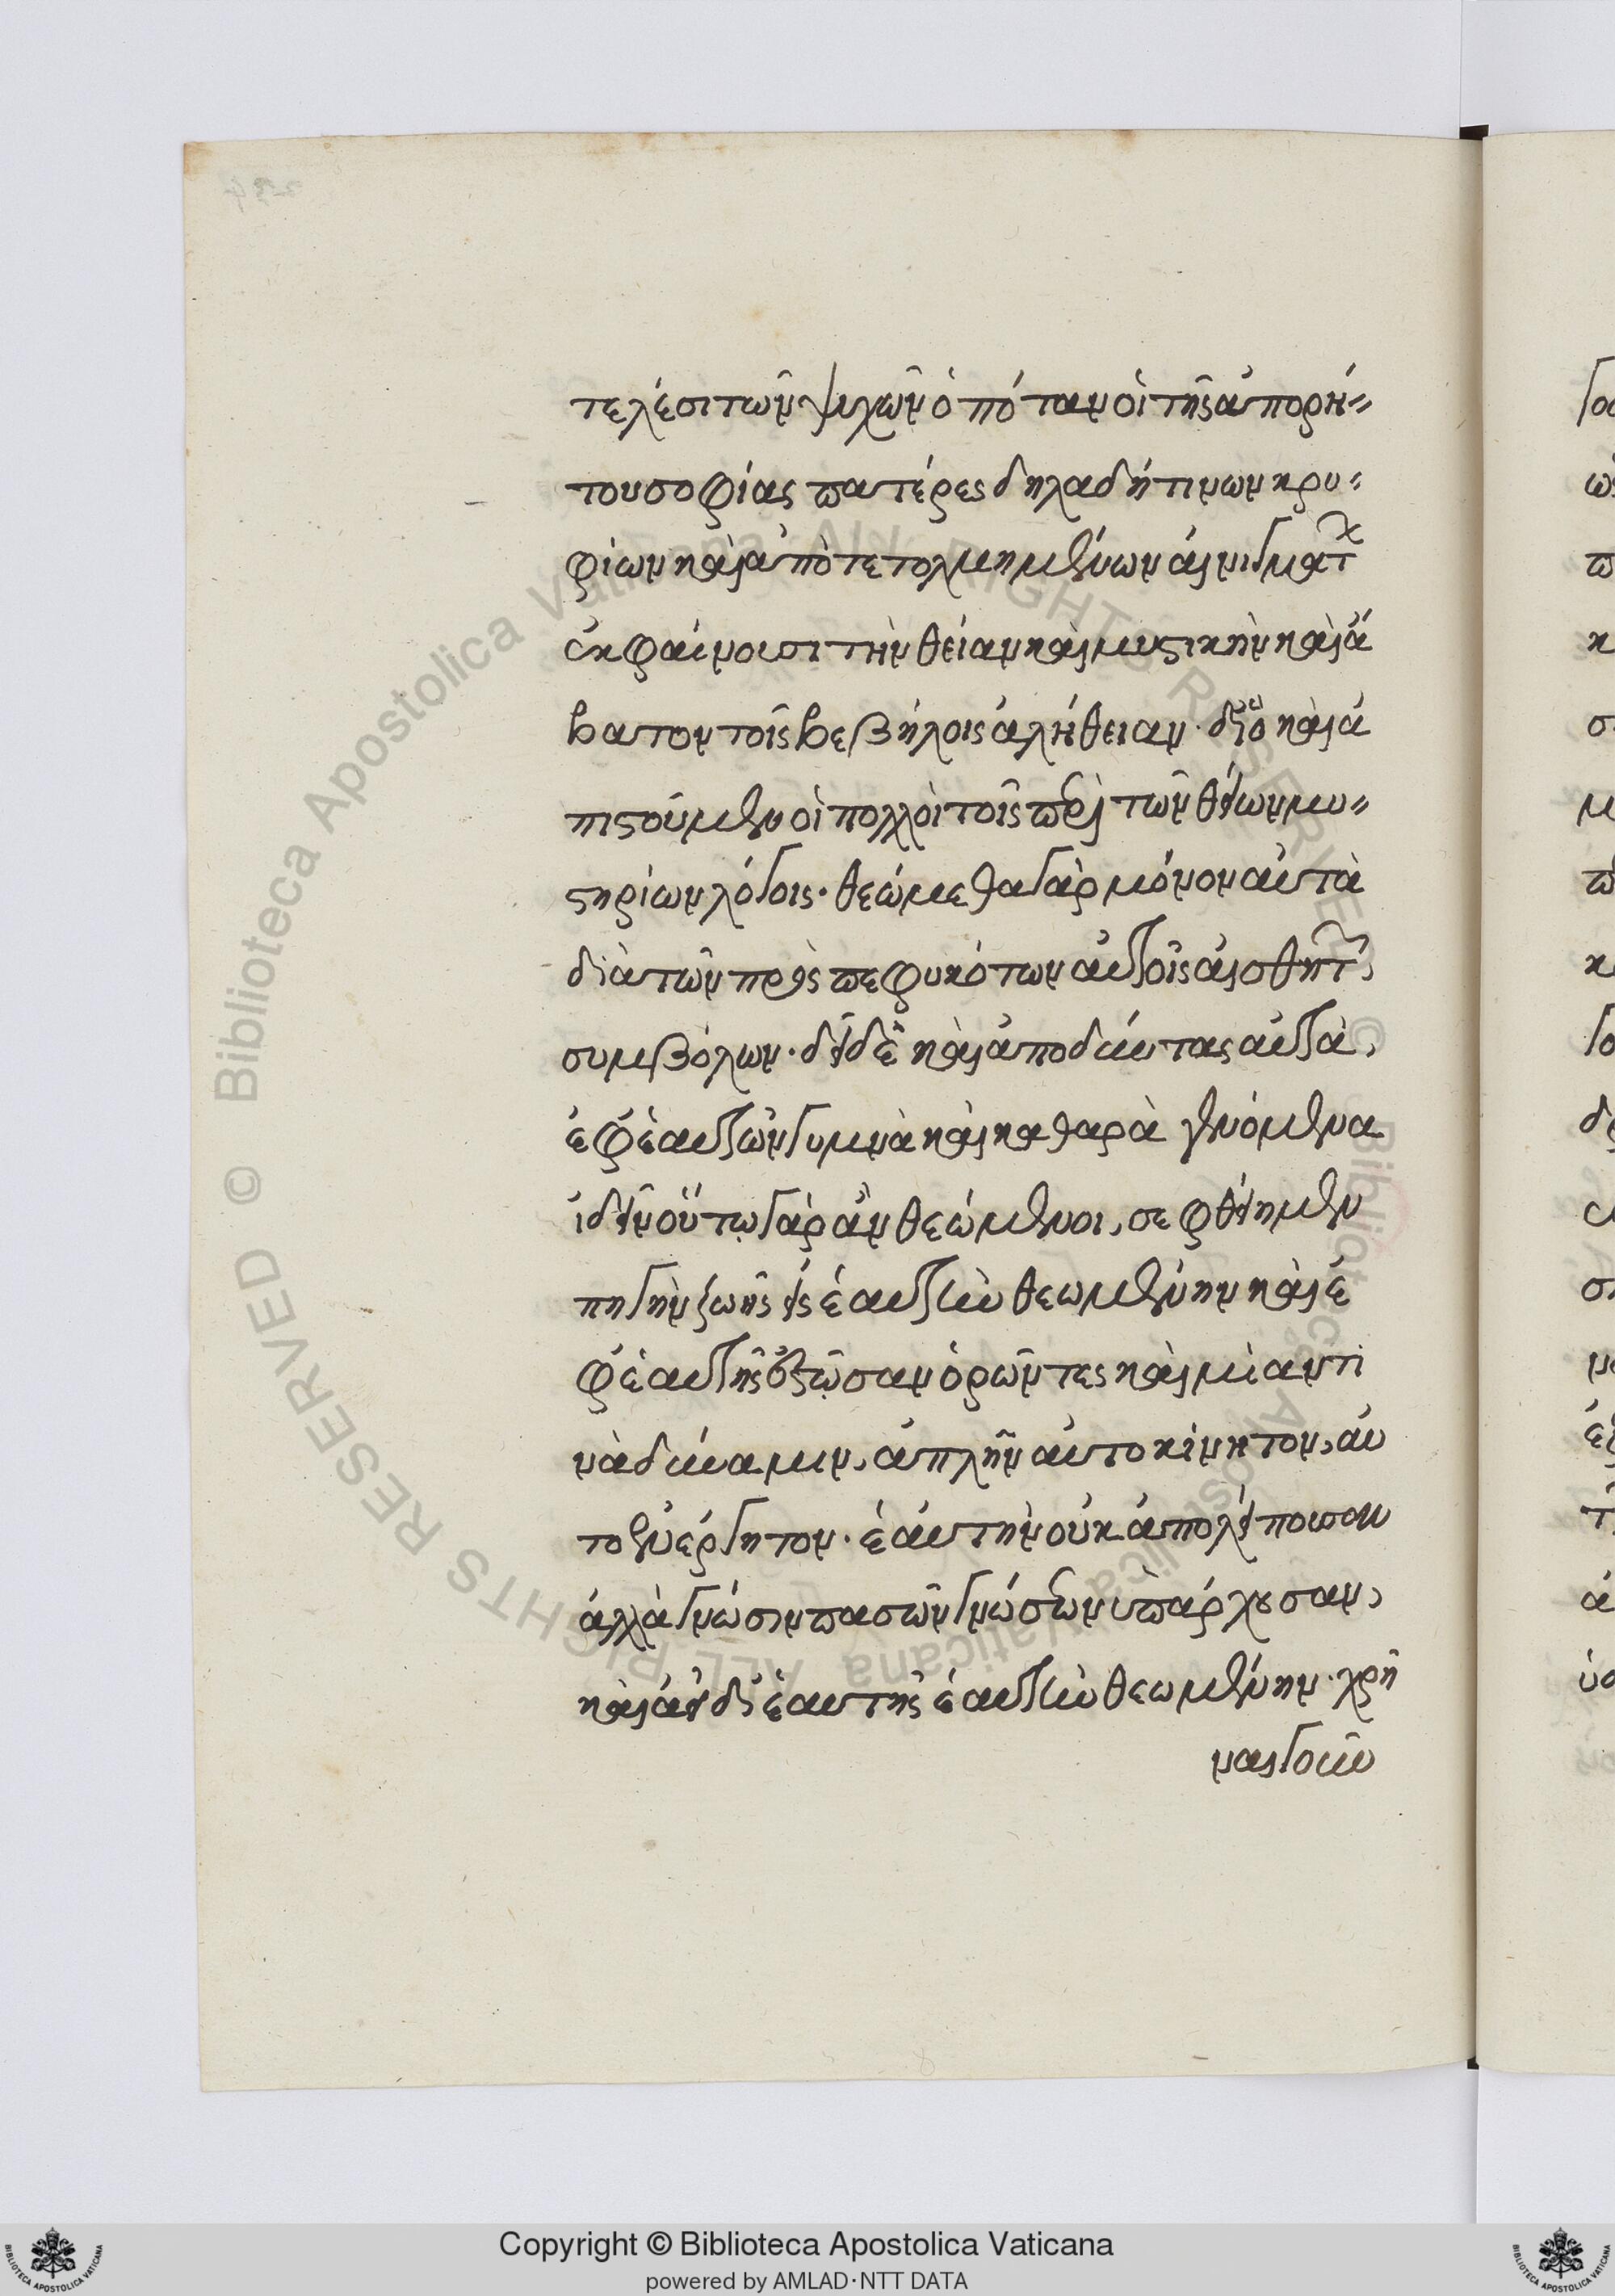 τελέσι τῶν ψυχῶν ὁπόταν οἱ τῆς ἀπορή-
του σοφίας πατέρες δηλαδή τινων κρυ-
φίων καὶ ἀποτετολμημένων αἰνιγμάτ
ἐκφαίνουσι τὴν θείαν καὶ μυστικὴν καὶ ἄ
βατον τοῖς βεβήλοις ἀλήθειαν. διὸ καὶ ἀ
πιστοῦμεν οἱ πολλοὶ τοῖς περὶ τῶν θείων μυ-
στηρίων λόγοις. θεώμεθα γὰρ μόνον αὐτὰ
διὰ τῶν προσπεφυκότων αὐτοῖς αἰσθητ
συμβόλων. δεῖ δὲ καὶ ἀποδύντας αὐτὰ,
ἐφ' ἑαυτῶν γυμνὰ καὶ καθαρὰ γενόμενα
ἰδεῖν οὕτω γὰρ ἂν θεώμενοι, σεφθείημεν
πηγὴν ζωῆς εἰς ἑαυτὴν θεωμένην καὶ ἐ
φ' ἑαυτῆς ἑστῶσαν ὁρῶντες καὶ μίαν τι
νὰ δύναμιν, ἁπλῆν αὐτοκίνητον, αὐ
τοενέργητον. ἑαυτὴν οὐκ ἀπολείπουσαν
ἀλλὰ γνῶσιν πασῶν γνώσεων ὑπάρχουσαν,
καὶ ἀεὶ δι' ἑαυτῆς ἑαυτὴν θεωμένην. χρῆ
ναι γοῦν
Copyright © Biblioteca Apostolica Vaticana
powered by AMLAD·NTT DATA